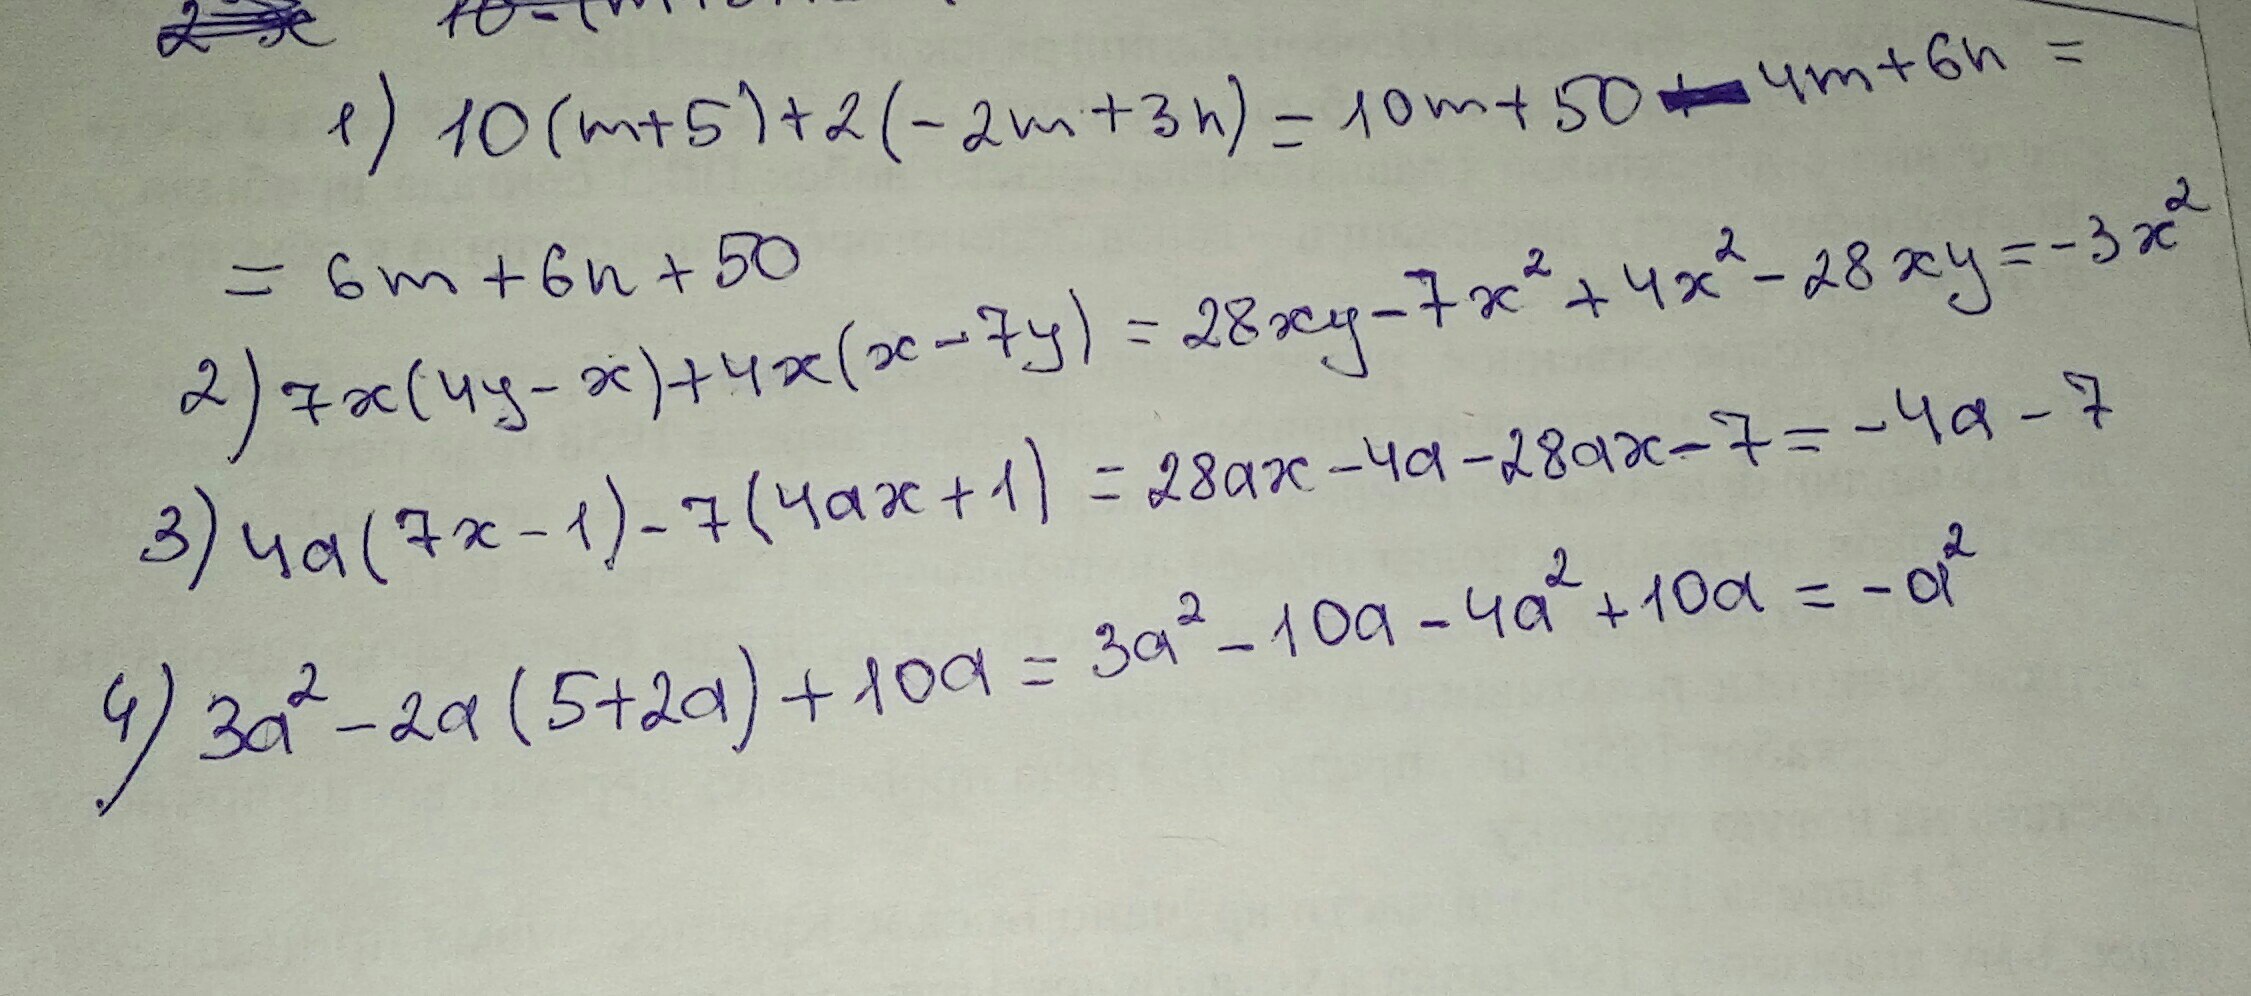 1) 10(m+5)+2(-2m+3n)=10m+50-4m+6n=
=6m+6n+50
2) 7x(4y-x)+4x(x-7y)=28xy-7x²+4x²-28xy=-3x²
3) 4a(7x-1)-7(4ax+1)=28ax-4a-28ax-7=-4a-7
4) 3a²-2a(5+2a)+10a=3a²-10a-4a²+10a=-a²